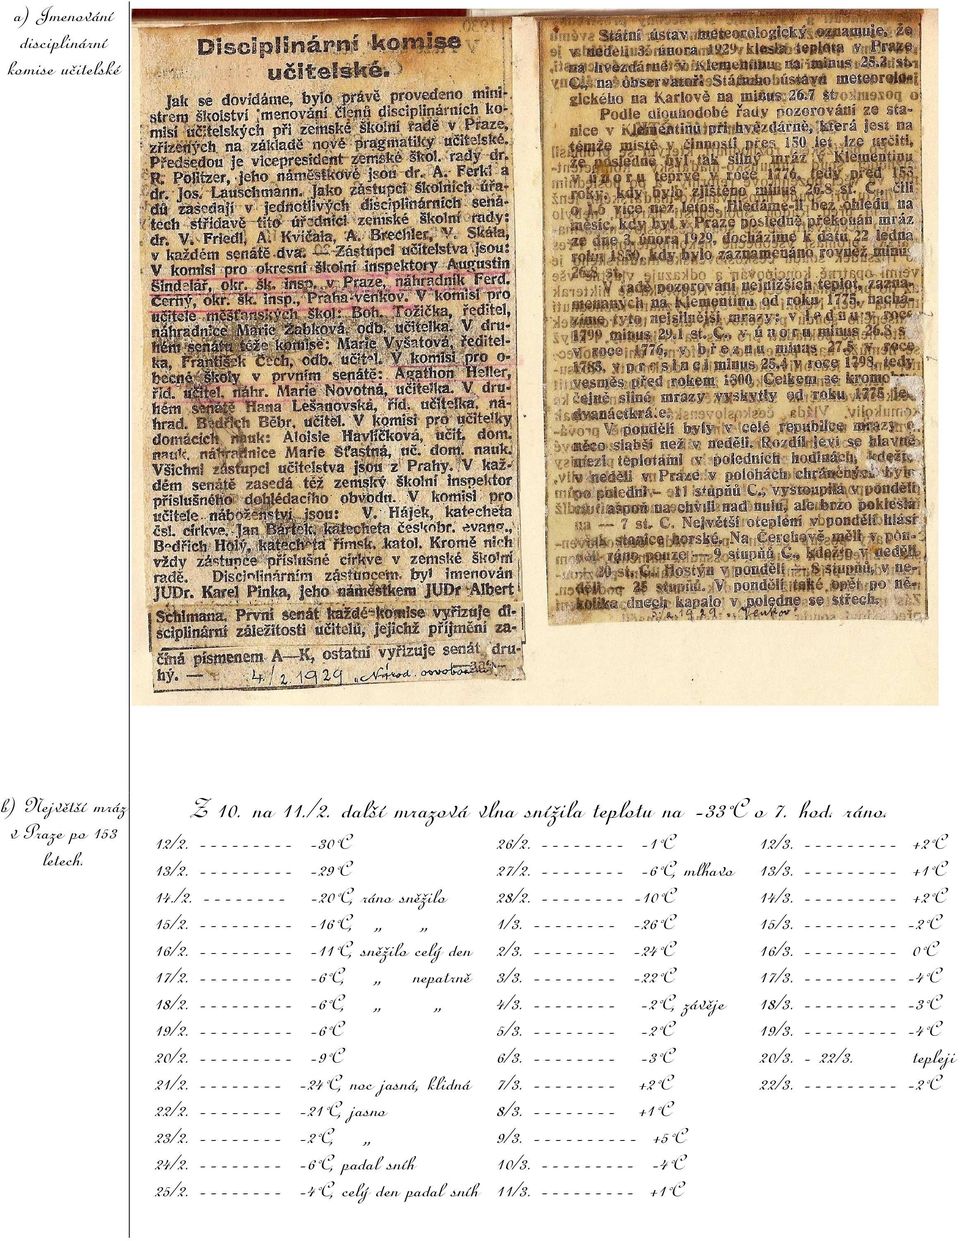 a) Jmenování
disciplinární
komise učitelské
Disciplinární komise
učitelské.
Jak se dovídáme, bylo právě provedeno mini-
strem školství jmenování členů disciplinárních ko-
misí učitelských při zemské školní radě v Praze,
zřízených na základě nové pragmatiky učitelské.
Předsedou je vicepresident zemské škol. rady dr.
R. Politzer, jeho náměstkové jsou dr. A. Ferkl a
dr. Jos. Lauschmann. Jako zástupci školních úřa-
dů zasedají v jednotlivých disciplinárních sená-
tech střídavě tito úředníci zemské školní rady:
dr. V. Friedl, A. Kvíčala, A. Brechler, V. Skála,
v každém senátě dva. — Zástupci učitelstva jsou:
V komisi pro okresní školní inspektory Augustin
Šindelář, okr. šk. insp. v Praze, náhradník Ferd.
Černý, okr. šk. insp. Praha-venkov. V komisi pro
učitele měšťanských škol: Boh. Tožička, ředitel,
náhradnice Marie Žabková odb. učitelka. V dru-
hém senátu téže komise: Marie Vyšatová, ředitel-
ka, František Čech, odb. učitel. V komisi pro o-
becné školy v prvním senátě: Agathon Heller,
říd. učitel, náhr. Marie Novotná, učitelka. V dru-
hém senátě Hana Lešanovská, říd. učitelka, ná-
hrad. Bedřich Běbr, učitel. V komisi pro učitelky
domácích nauk: Aloisie Havlíčková, učit. dom.
nauk, náhradnice Marie Šťastná, uč. dom. nauk.
Všichni zástupci učitelstva jsou z Prahy. V kaž-
dém senátě zasedá též zemský školní inspektor
příslušného dohlédacího obvodu. V komisi pro
učitele náboženství jsou: V. Hájek, katecheta
čsl. církve, Jan Bártek, katecheta českobr. evang.,
Bedřich Holý, katecheta římsk. katol. Kromě nich
vždy zástupce příslušné církve v zemské školní
radě. Disciplinárním zástupcem byl jmenován
JUDr. Karel Pinka, jeho náměstkem JUDr Albert
Schlmana. První senát každé komise vyřizuje di-
sciplinární záležitosti učitelů, jejichž příjmení za-
číná písmenem A—K, ostatní vyřizuje senát dru-
hý. — 4./2. 1929 „Národ. osvobození
Státní ústav meteorologický oznamuje, že
v neděli 3. února 1929 klesla teplota v Praze
na hvězdárně v Klementinu na minus 25.3 st.
C., na observatoři Státního ústavu meteorolo-
gického na Karlově na minus 26.7 st.
Podle dlouhodobé řady pozorování ze sta-
nice v Klementinu při hvězdárně, která jest na
témže místě v činnosti přes 150 let, lze určiti,
že posledně byl tak silný mráz v Klementinu
v únoru teprve v roce 1776, tedy před 153
roky, kdy bylo zjištěno minus 26.8 st. C., čili
o 1.5 více než letos. Hledáme-li bez ohledu na
měsíc, kdy byl v Praze posledně překonán mráz
ze dne 3. února 1929, docházíme k datu 22 ledna
roku 1850, kdy bylo zaznamenáno rovněž minus
26.3 st.
V řadě pozorování nejnižších teplot, zazna-
menaných na Klementinu od roku 1775, nachá-
zíme tyto nejsilnější mrazy: v lednu v roce
1799 minus 29.1 st. C., v únoru minus 26.8 s
v roce 1776, v březnu minus 27.5 v roce
1785, v prosinci minus 25.4 v roce 1798, tedy
vesměs před rokem 1800. Celkem se kromo-
čejně silné mrazy vyskytly od roku 1775 je
dvanáctkráte.
V pondělí byly v celé republice mrazy
něco slabší než v neděli. Rozdíl jeví se hlavně
mezi teplotami v poledních hodinách, kdežto
v neděli v Praze v polohách chráněných bylo
po poledni — 11 stupňů C., vystoupila v pondělí
aspoň na chvíli nad nulu, ale brzo poklesla
na — 7 st. C. Největší oteplení v pondělí hlásí
stanice horské. Na Čerchově měli v pon-
dělí ráno pouze — 9 stupňů C., kdežto v neděli
— 20 st. C. Hostýn v pondělí — 8 stupňů, v ne-
děli — 25 stupňů. V pondělí také opět po ně-
kolika dnech kapalo v poledne se střech.
5./2. 1929. „Venkov"
b) Největší mráz
v Praze po 153
letech.
Z 10. na 11./2. další mrazová vlna snížila teplotu na -33°C o 7. hod. ráno.
12/2. - - - - - - - - - -30°C
13/2. - - - - - - - - - -29°C
14./2. - - - - - - - - -20°C, ráno sněžilo
15/2. - - - - - - - - - -16°C, „ „
16/2. - - - - - - - - - -11°C, sněžilo celý den
17/2. - - - - - - - - - -6°C, „ nepatrně
18/2. - - - - - - - - - -6°C, „ „
19/2. - - - - - - - - - -6°C
20/2. - - - - - - - - - -9°C
21/2. - - - - - - - - -24°C, noc jasná, klidná
22/2. - - - - - - - - -21°C, jasno
23/2. - - - - - - - - -2°C, „
24/2. - - - - - - - - -6°C, padal sníh
25/2. - - - - - - - - -4°C, celý den padal sníh
26/2. - - - - - - - - -1°C
27/2. - - - - - - - - -6°C, mlhavo
28/2. - - - - - - - - -10°C
1/3. - - - - - - - - -26°C
2/3. - - - - - - - - -24°C
3/3. - - - - - - - - -22°C
4/3. - - - - - - - - -2°C, závěje
5/3. - - - - - - - - -2°C
6/3. - - - - - - - - -3°C
7/3. - - - - - - - - +2°C
8/3. - - - - - - - - +1°C
9/3. - - - - - - - - - - +5°C
10/3. - - - - - - - - - -4°C
11/3. - - - - - - - - - +1°C
12/3. - - - - - - - - - +2°C
13/3. - - - - - - - - - +1°C
14/3. - - - - - - - - - +2°C
15/3. - - - - - - - - - -2°C
16/3. - - - - - - - - - 0°C
17/3. - - - - - - - - - -4°C
18/3. - - - - - - - - - -3°C
19/3. - - - - - - - - - -4°C
20/3. - 22/3. tepleji
22/3. - - - - - - - - - -2°C